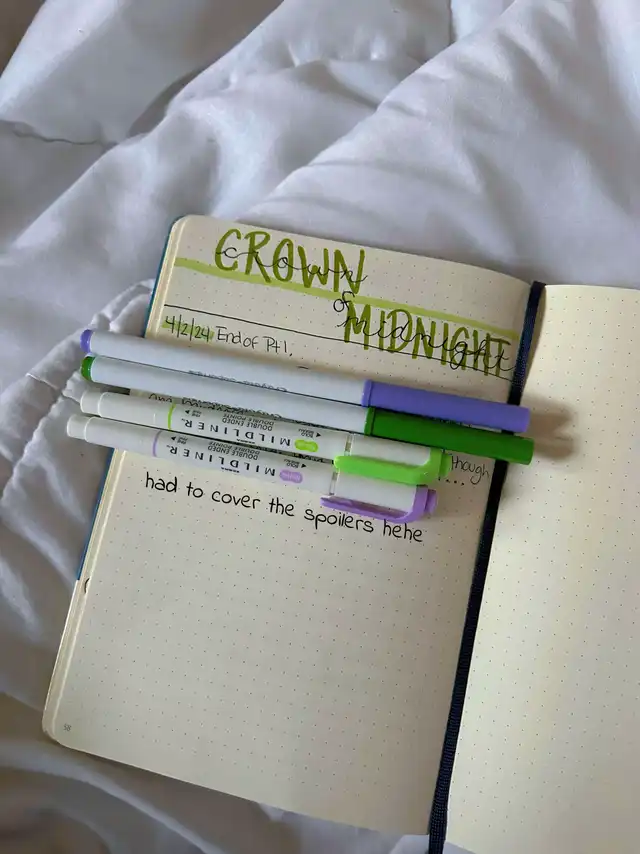 CROWN
crown
of
MIDNIGHT
midnight
4/2/24 End of Pt 1.
MILDLINER
DOUBLE ENDED
DOUBLE POINTS
MILDLINER
DOUBLE ENDED
DOUBLE POINTS
though
...
had to cover the spoilers hehe